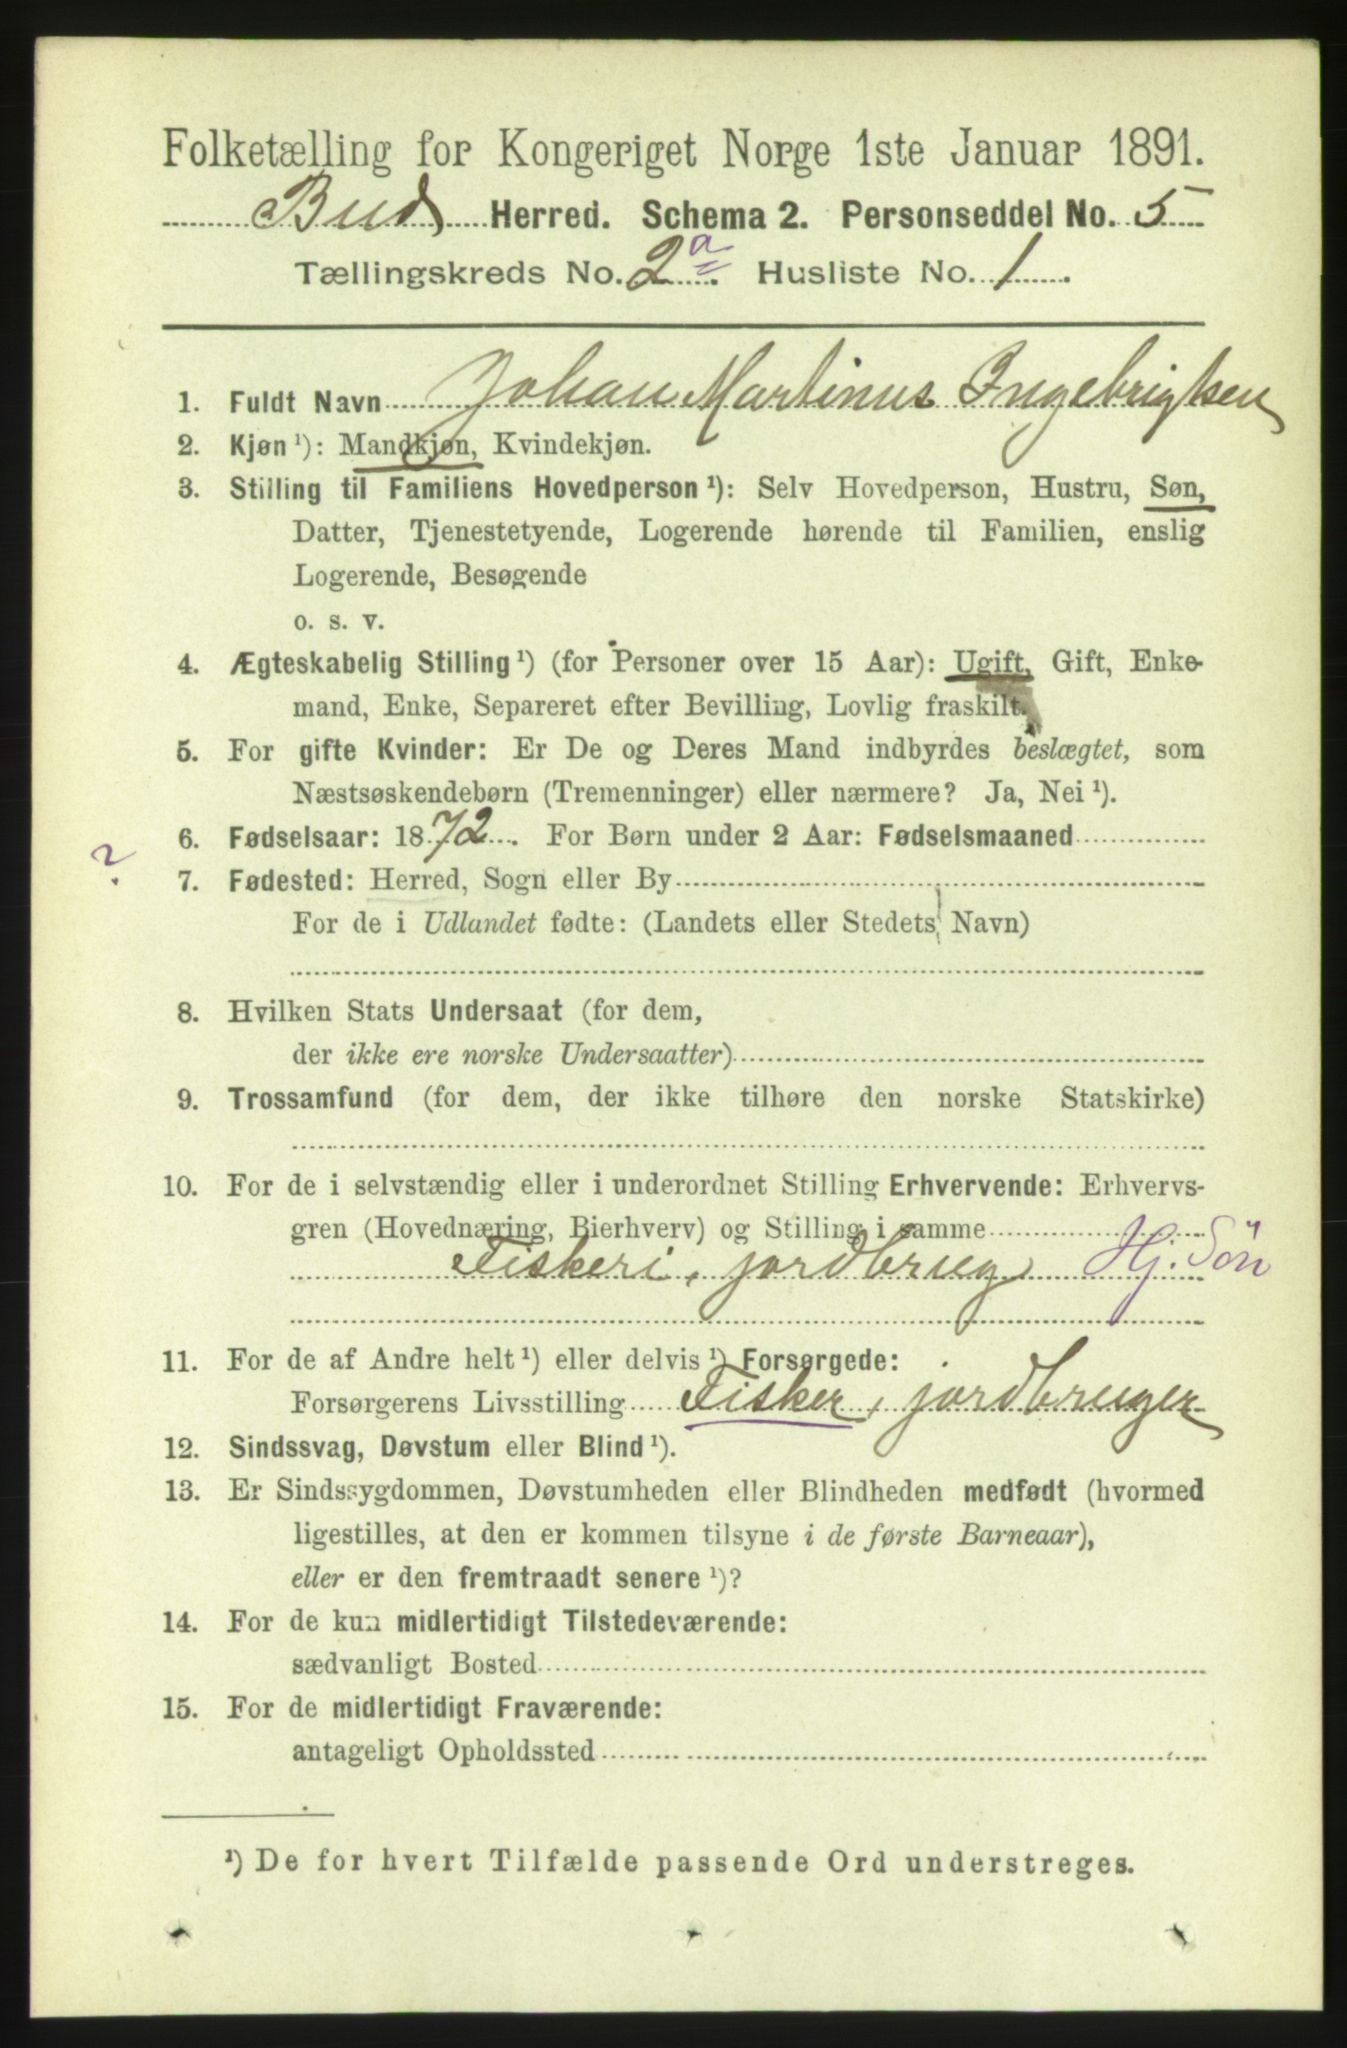 Folketælling for Kongeriget Norge 1ste Januar 1891.
Bud Herred. Schema 2. Personseddel No. 5
Tællingskreds No. 2a. Husliste No. 1.
1. Fuldt Navn Johan Martinus Ingebrigtsen
2. Kjøn ¹): Mandkjøn, Kvindekjøn.
3. Stilling til Familiens Hovedperson ¹): Selv Hovedperson, Hustru, Søn,
Datter, Tjenestetyende, Logerende hørende til Familien, enslig
Logerende, Besøgende
o. s. v.
4. Ægteskabelig Stilling ¹) (for Personer over 15 Aar): Ugift, Gift, Enke-
mand, Enke, Separeret efter Bevilling, Lovlig fraskilt.
5. For gifte Kvinder: Er De og Deres Mand indbyrdes beslægtet, som
Næstsøskendebørn (Tremenninger) eller nærmere? Ja, Nei ¹).
6. Fødselsaar: 1872. For Børn under 2 Aar: Fødselsmaaned
?
7. Fødested: Herred, Sogn eller By
For de i Udlandet fødte: (Landets eller Stedets Navn)
8. Hvilken Stats Undersaat (for dem,
der ikke ere norske Undersaatter)
9. Trossamfund (for dem, der ikke tilhøre den norske Statskirke)
10. For de i selvstændig eller i underordnet Stilling Erhvervende: Erhvervs-
gren (Hovednæring, Bierhverv) og Stilling i samme
Fiskeri, jordbrug Hj. Søn
11. For de af Andre helt ¹) eller delvis ¹) Forsørgede:
Forsørgerens Livsstilling Fisker, jordbruger
12. Sindssvag, Døvstum eller Blind ¹).
13. Er Sindssygdommen, Døvstumheden eller Blindheden medfødt (hvormed
ligestilles, at den er kommen tilsyne i de første Barneaar),
eller er den fremtraadt senere ¹)?
14. For de kun midlertidigt Tilstedeværende:
sædvanligt Bosted
15. For de midlertidigt Fraværende:
antageligt Opholdssted
¹) De for hvert Tilfælde passende Ord understreges.